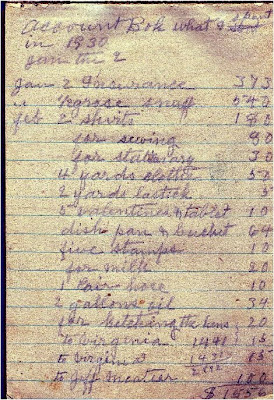 Account Bok what I spent
in 1930
Jan the 2
Jan 2 Insurance 373
" segrose snuf 540
Feb 2 shirts 180
for sewing 90
for stationary 30
4 yards clothe 50
2 yards lastick 5
5 valentines & tablet 10
dish pan & bucket 64
five stamps 10
for milk 20
1 pair hose 10
2 gallons oil 34
for ketching the hens 20
to virginia 1441 15
to virgin 3 1441 15
to Jeff 100
$ 1656